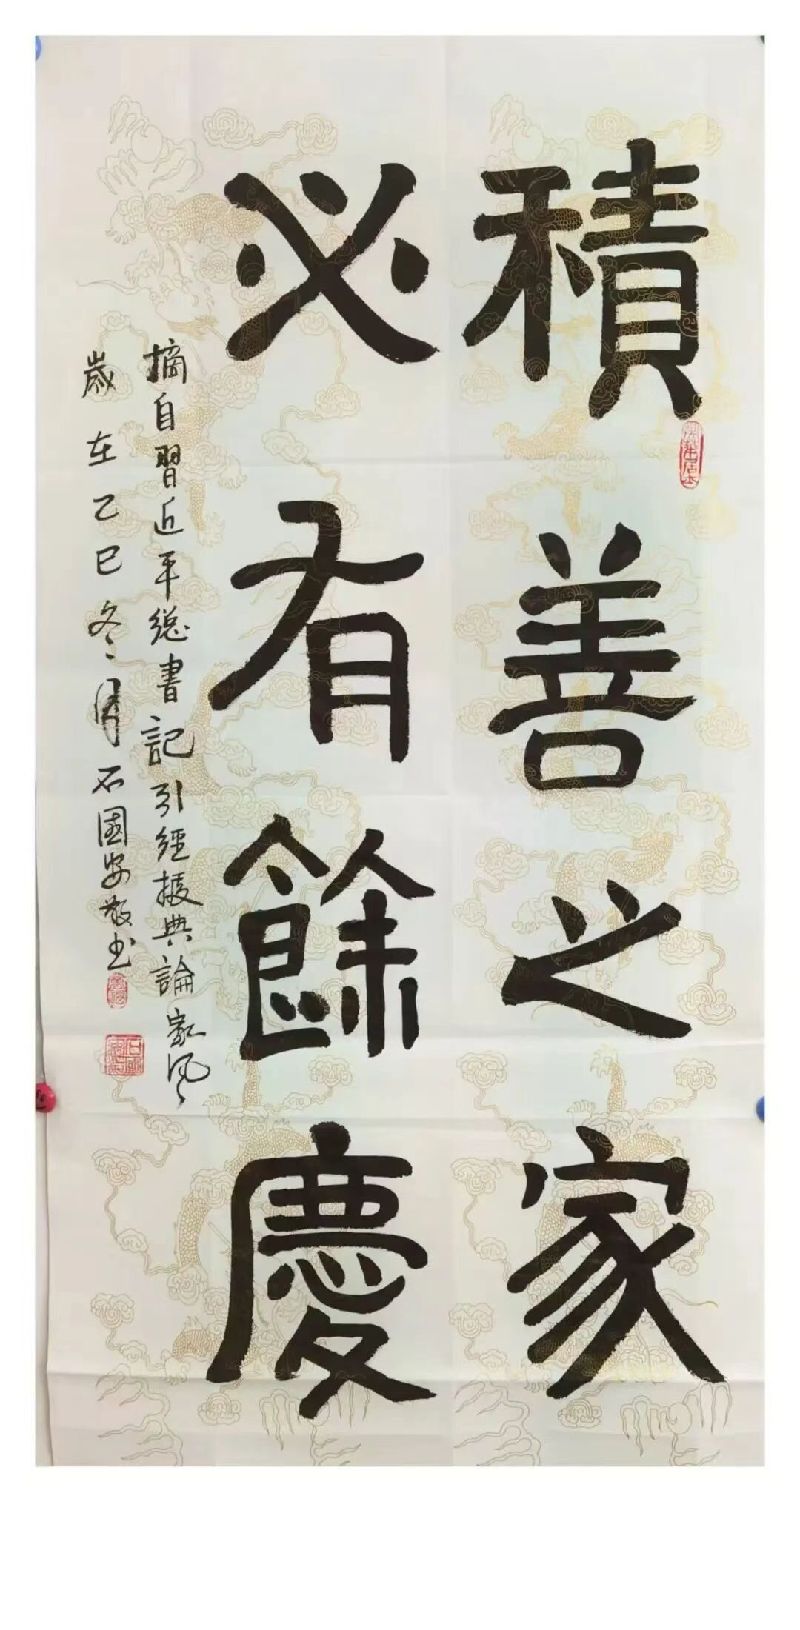 積善之家
必有餘慶
摘自習近平總書記引經援典論家風
歲在乙巳冬月石國安敬书